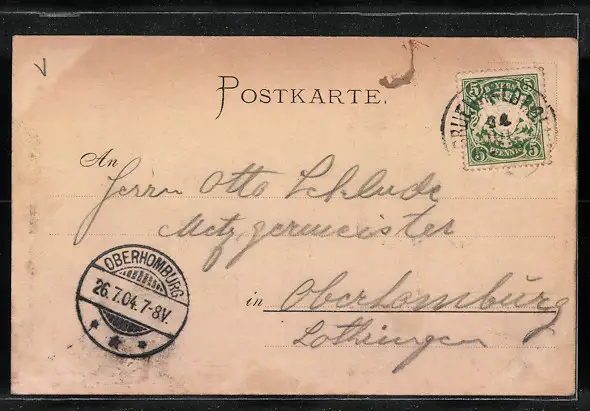 POSTKARTE.
5 BAYERN 5
5 PFENNIG 5
An
Herrn Otto Schlude
Metzgermeister
in Oberhomburg
Lothringen
OBERHOMBURG
26.7.04.7-8V.